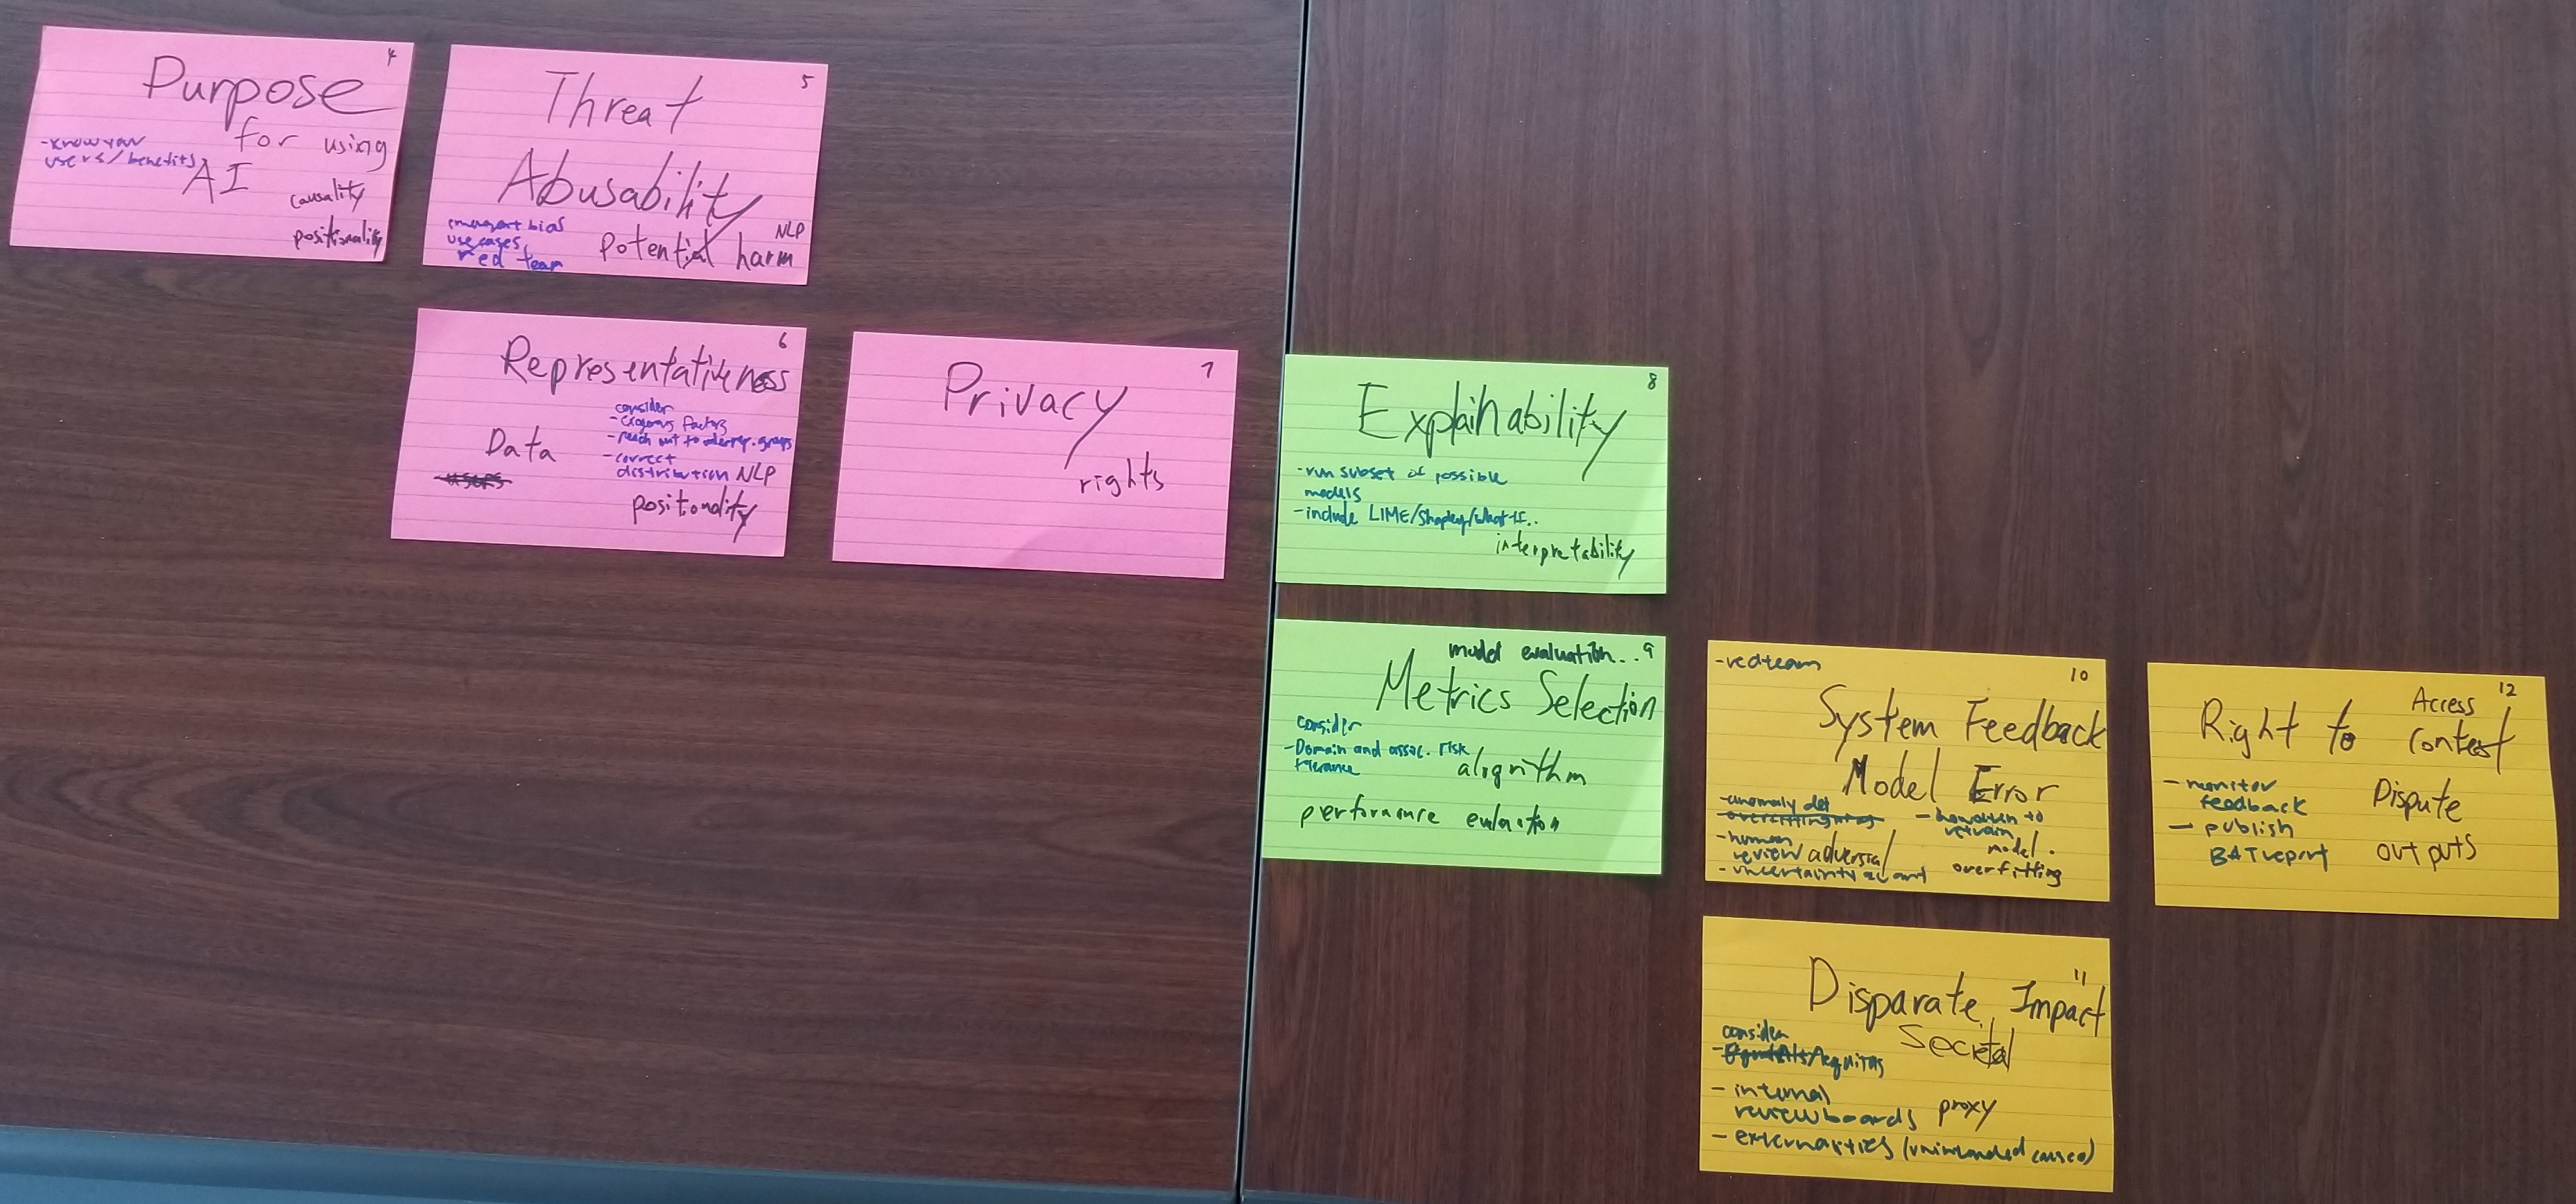 4
Purpose
for using
AI
- know your
users/benefits
causality
positionality
5
Threat
Abusability
potential harm
NLP
emergent bias
use cases
red team
6
Representativeness
Data
consider
- exogenous factors
- reach out to underrep. groups
- correct
distribution NLP
positionality
7
Privacy
rights
8
Explainability
- run subset of possible
models
- include LIME/Shapley/What-If..
interpretability
model evaluation... 9
Metrics Selection
consider
- Domain and assoc. risk
tolerance
algorithm
performance evaluation
- redteam
10
System Feedback
Model Error
- anomaly det
- human
review
adversial
- uncertainty
- how often to
retrain
model.
overfitting
12
Right to
Access
contest
Dispute
outputs
- monitor
feedback
- publish
BAT report
11
Disparate Impact
Societal
consider
Aequitas
- internal
review boards
proxy
- externalities (unintended